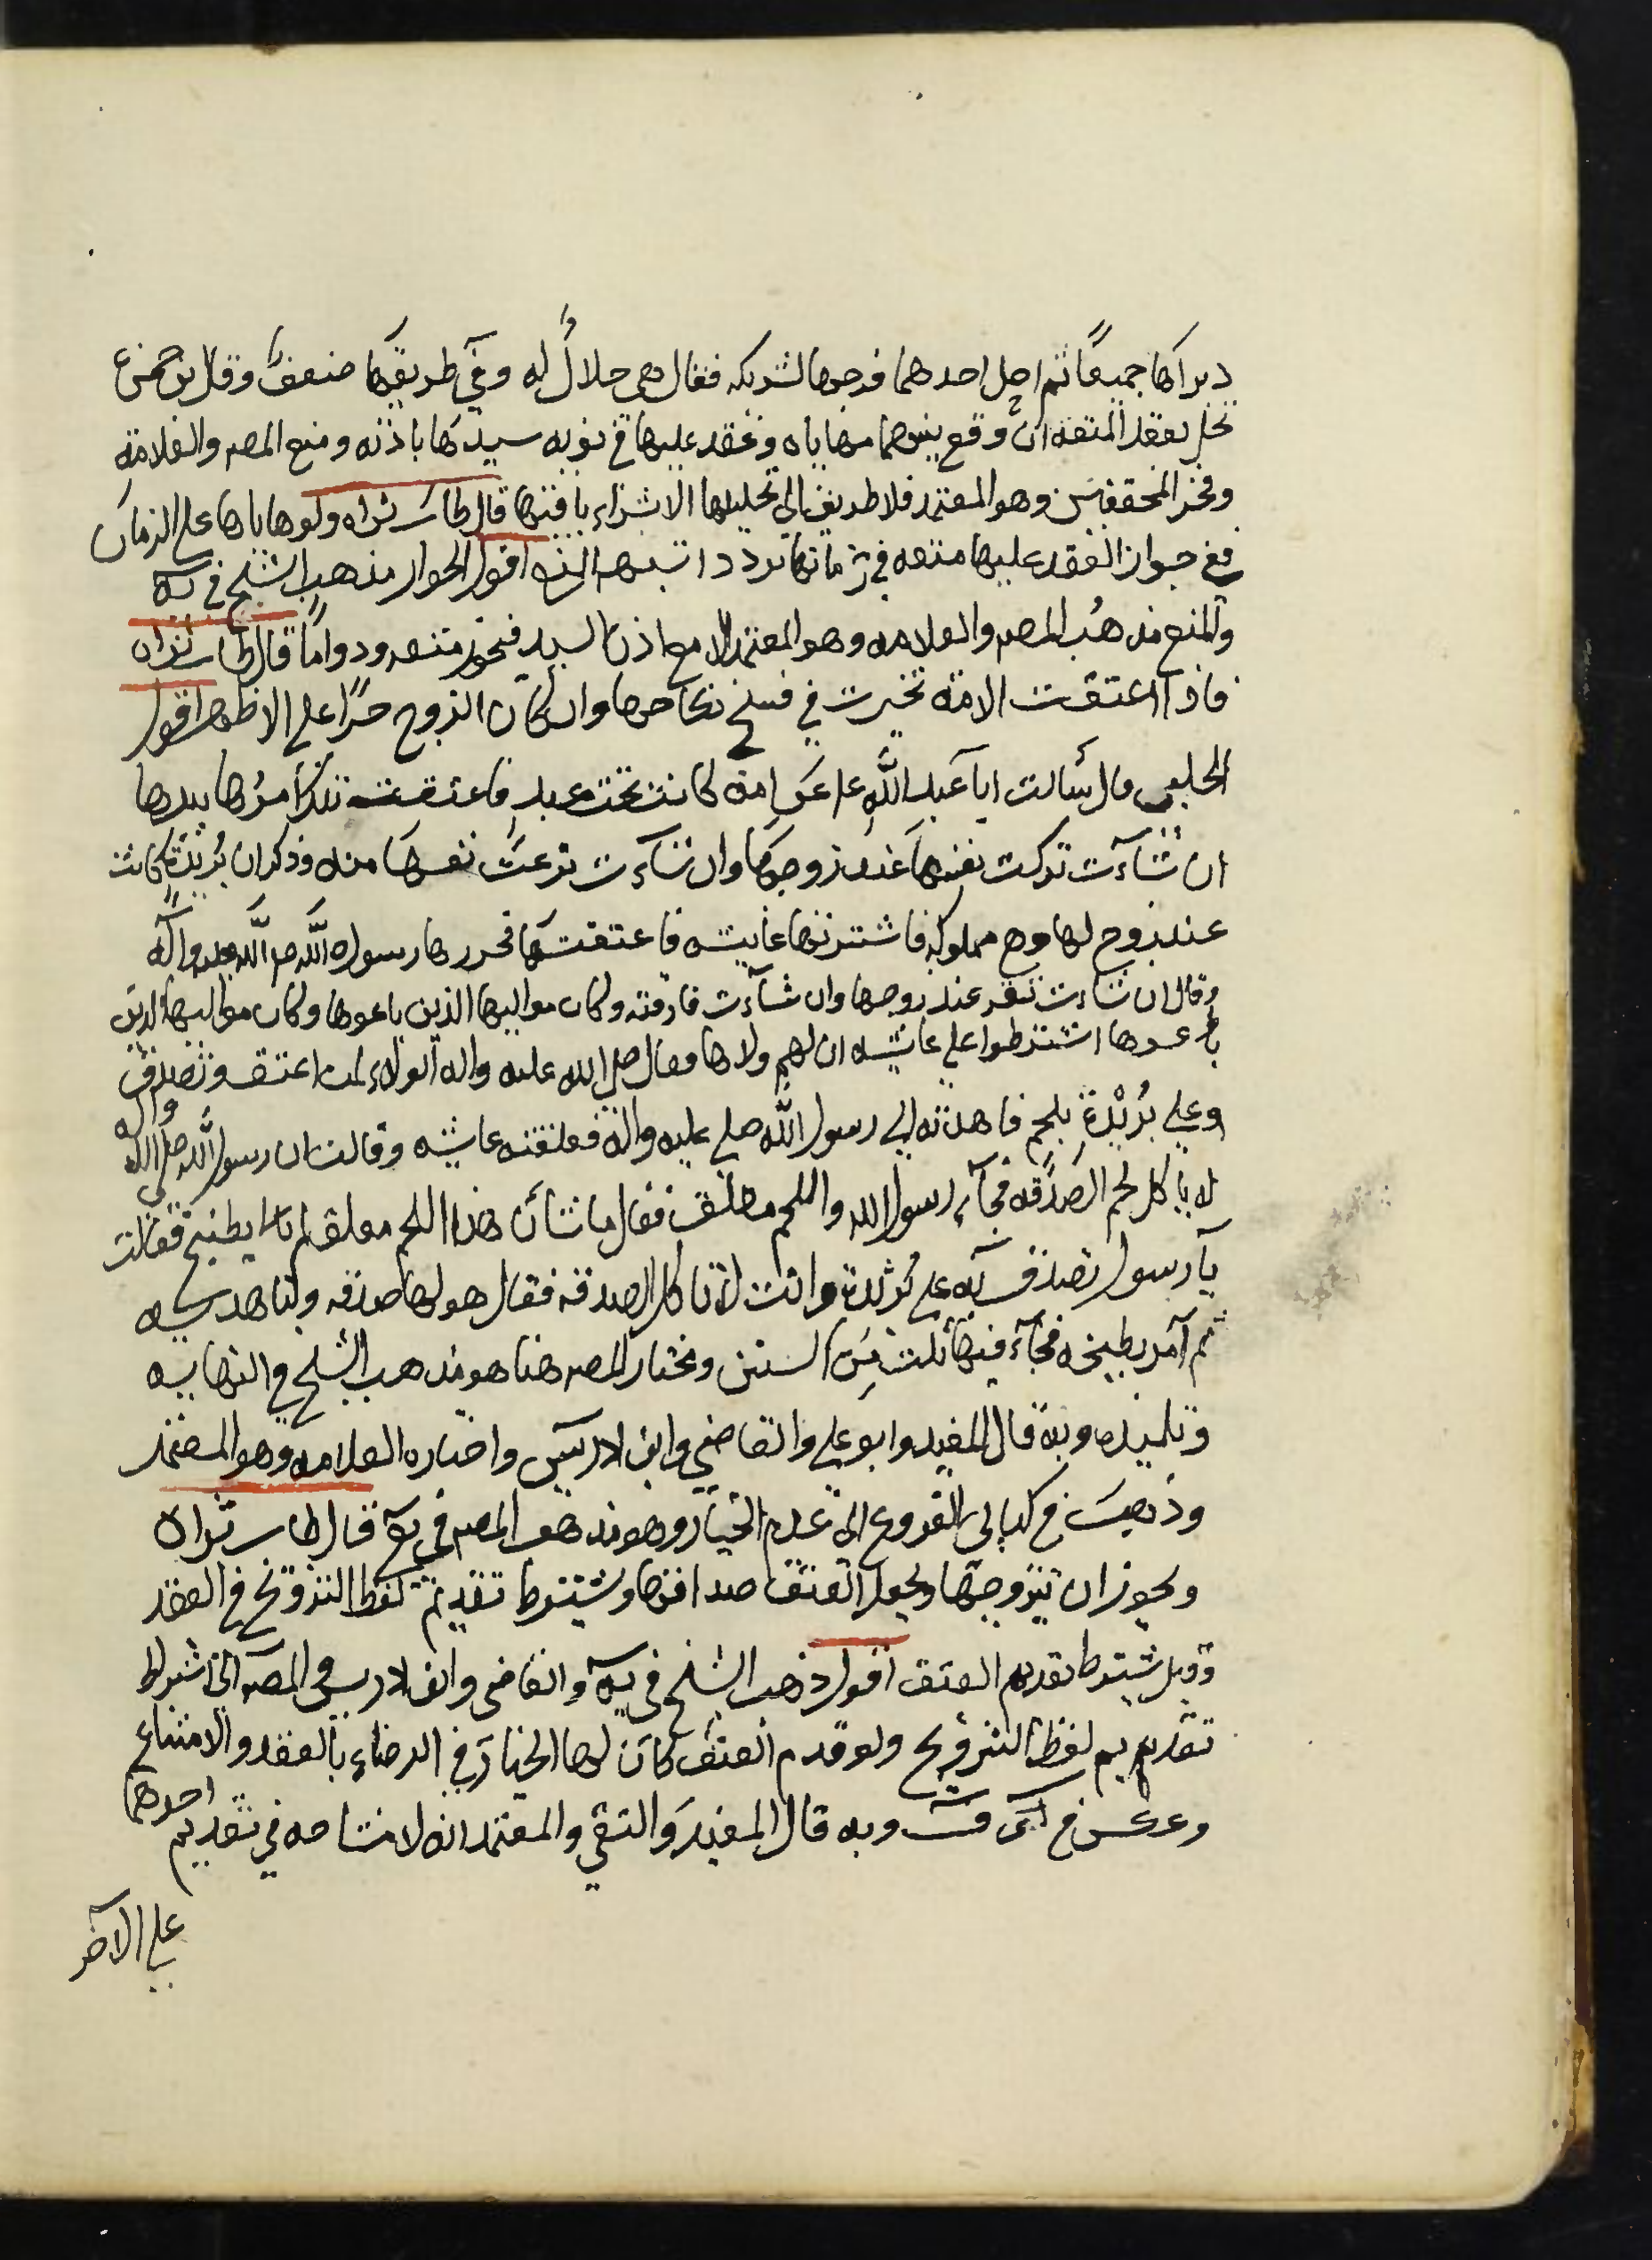 دبراها جميعًا ثم احل احدهما فرجها لشريكه فقال هى حلالٌ له وفي طريقها ضعفٌ وقال بن حمزة
تحل بعقد المتعه ان وقع بينهما مهاياه وعقد عليها في نوبه سيدها باذنه ومنع المصه والعلامة
وفخر المحققين وهو المعتمد فلا طريق الى تحليلها الا بشراء باقيها قال طاب ثراه ولو هاياها على الزمان
ففي جواز العقد عليها متعه في زمانها تردد اشبهه المنع اقول الجواز مذهب الشيخ في يه
والمنع مذهب المصه والعلامه وهو المعتمد الا مع اذن السيد فيجوز متعه ودوامًا قال طاب ثراه
فاذا اعتقت الامة تخيرت في فسخ نكاحها وان كان الزوج حرًا على الاظهر اقول
الحلبى قال سَالت ابا عبد الله ع عن امة كانت تحت عبد فاعتقت امرُها بيدها
ان شاءت تركت نفسها عند زوجها وان شاءت نزعت نفسها منه وذكر ان بُريدة كانت
عند زوج لها وهى مملوكه فاشترتها عايشه فاعتقتها فخيرها رسول الله صلى الله عليه وآله
وقال ان شاءت تقر عند زوجها وان شاءت فارقته وكان مواليها الذين باعوها وكان مواليها الذين
باعوها اشترطوا على عايشه ان لهم ولاها فقال صلى الله عليه واله الولاء لمن اعتق وتصدق
وعلى بُرْيدة بلحم فاهدته الى رسول الله صلى عليه واله فعلقته عايشه وقالت ان رسول الله صلى الله واله
لا ياكل لحم الصدقه فجاء رسول الله واللحم معلق فقال ما شأن هذا اللحم معلق لم يطبخ فقالت
يا رسول تصدق به على بُريدة وانت لا تاكل الصدقه فقال هو لها صدقه ولنا هديه
ثم آمر بطبخه فجاء فيها ثلث من السنن ومختار المصه هنا هو مذهب الشيخ في النهايه
وتلميذه وبه قال المفيد وابو على والقاضي وابن ادريس واختاره العلامه وهو المعتمد
وذهب في كتابى الفروع الى عدم الخيار وهو مذهب المصه في يع قال طاب ثراه
ويجوز ان تيزوجها ويجعل العتق صداقها ويشترط تقديم لفظ التزويج في العقد
وقيل يشترط تقديم العتق اقول ذهب الشيخ في يه والقاضى وابن ادريس والمصه الى اشتراط
تقديم لفظ التزويج ولو قدم العتق كان لها الخيار في الرضاء بالعقد والامتناع
وعكس في ف وبه قال المفيد والتقي والمعتمد انه لا مشاحه في تقديم احدهما
على الآخر